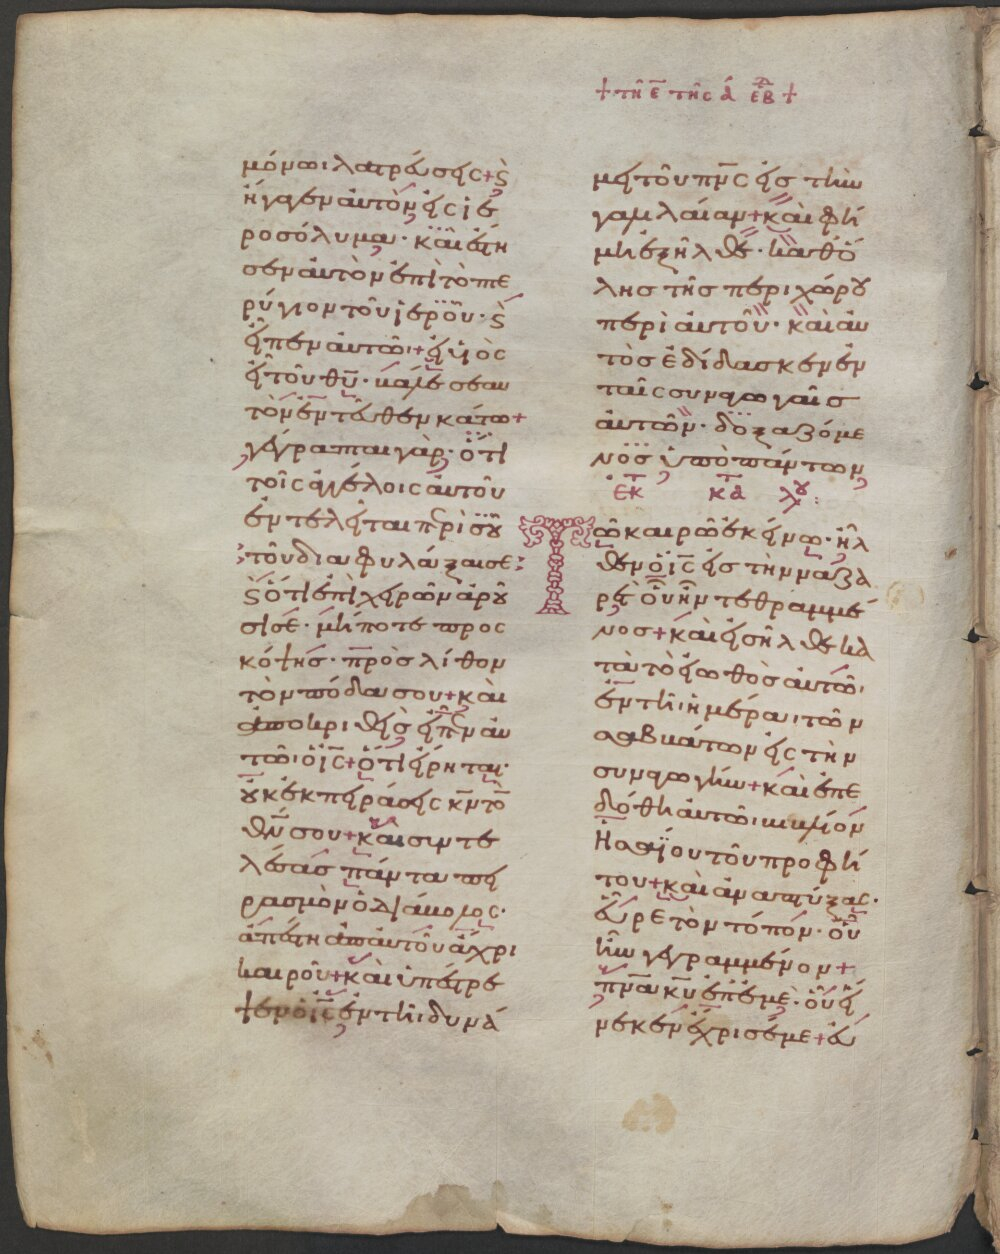 + τῆ ε̄ τῆς ά ἑβδ +
μόνωι λατρεύσεις + ϛ
ἤγαγεν αὐτὸν εἰς ἱε
ροσόλυμα · καὶ ἔστη
σεν αὐτὸν ἐπὶ τὸ πτε
ρύγιον τοῦ ἱεροῦ · ϛ
εἶπεν αὐτῶ + εἰ υἱὸς
εἶ τοῦ θῦ · βάλε σεαυ
τὸν ἐντεῦθεν κάτω +
γέγραπται γὰρ · ὅτι
τοῖς ἀγγέλοις αὐτοῦ
ἐντελεῖται περὶ σοῦ
τοῦ διαφυλάξαι σε :
ϛ ὅτι ἐπὶ χειρῶν ἀροῦ
σί σε · μήποτε προς
κόψης · πρὸς λίθον
τὸν πόδα σου + καὶ
ἀποκριθεὶς εἶπεν αὐ
τῶ ὁ ις + ὅτι εἴρηται ·
οὐκ ἐκπειράσεις κν τὸ
θν σου + καὶ συντε
λέσας πάντα πει
ρασμὸν ὁ διάβολος ·
ἀπέστη ἀπ αὐτοῦ ἄχρι
καιροῦ + καὶ ὑπέστρε
ψεν ὁ ις ἐν τῆι δυνά
μει τοῦ πνς εἰς τὴν
γαλιλαίαν + καὶ φή
μη ἐξῆλθε · καθ ὅ
λης τῆς περιχώρου
περὶ αὐτοῦ · καὶ αὐ
τὸς ἐδίδασκεν ἐν
ταῖς συναγωγαῖς
αὐτῶν · δοξαζόμε
νος ὑπὸ πάντων
ἐκ κδ λου :
Τῶ καιρῶ ἐκείνω · ἦλ
θεν ὁ ις εἰς τὴν ναζα
ρέτ οὗ ἦν τεθραμμέ
νος + καὶ εἰσῆλθε κα
τὰ τὸ εἰωθὸς αὐτῶ
ἐν τῆι ἡμέραι τῶν
σαββάτων εἰς τὴν
συναγωγήν + καὶ ἐπε
δόθη αὐτῶ βιβλίον
Ἠσαΐου τοῦ προφή
του + καὶ ἀναπτύξας ·
εὗρε τὸν τόπον · οὗ
ἦν γεγραμμένον +
πνα κυ ἐπ ἐμὲ · οὗ εἵ
νεκεν ἔχρισέ με + εὐ